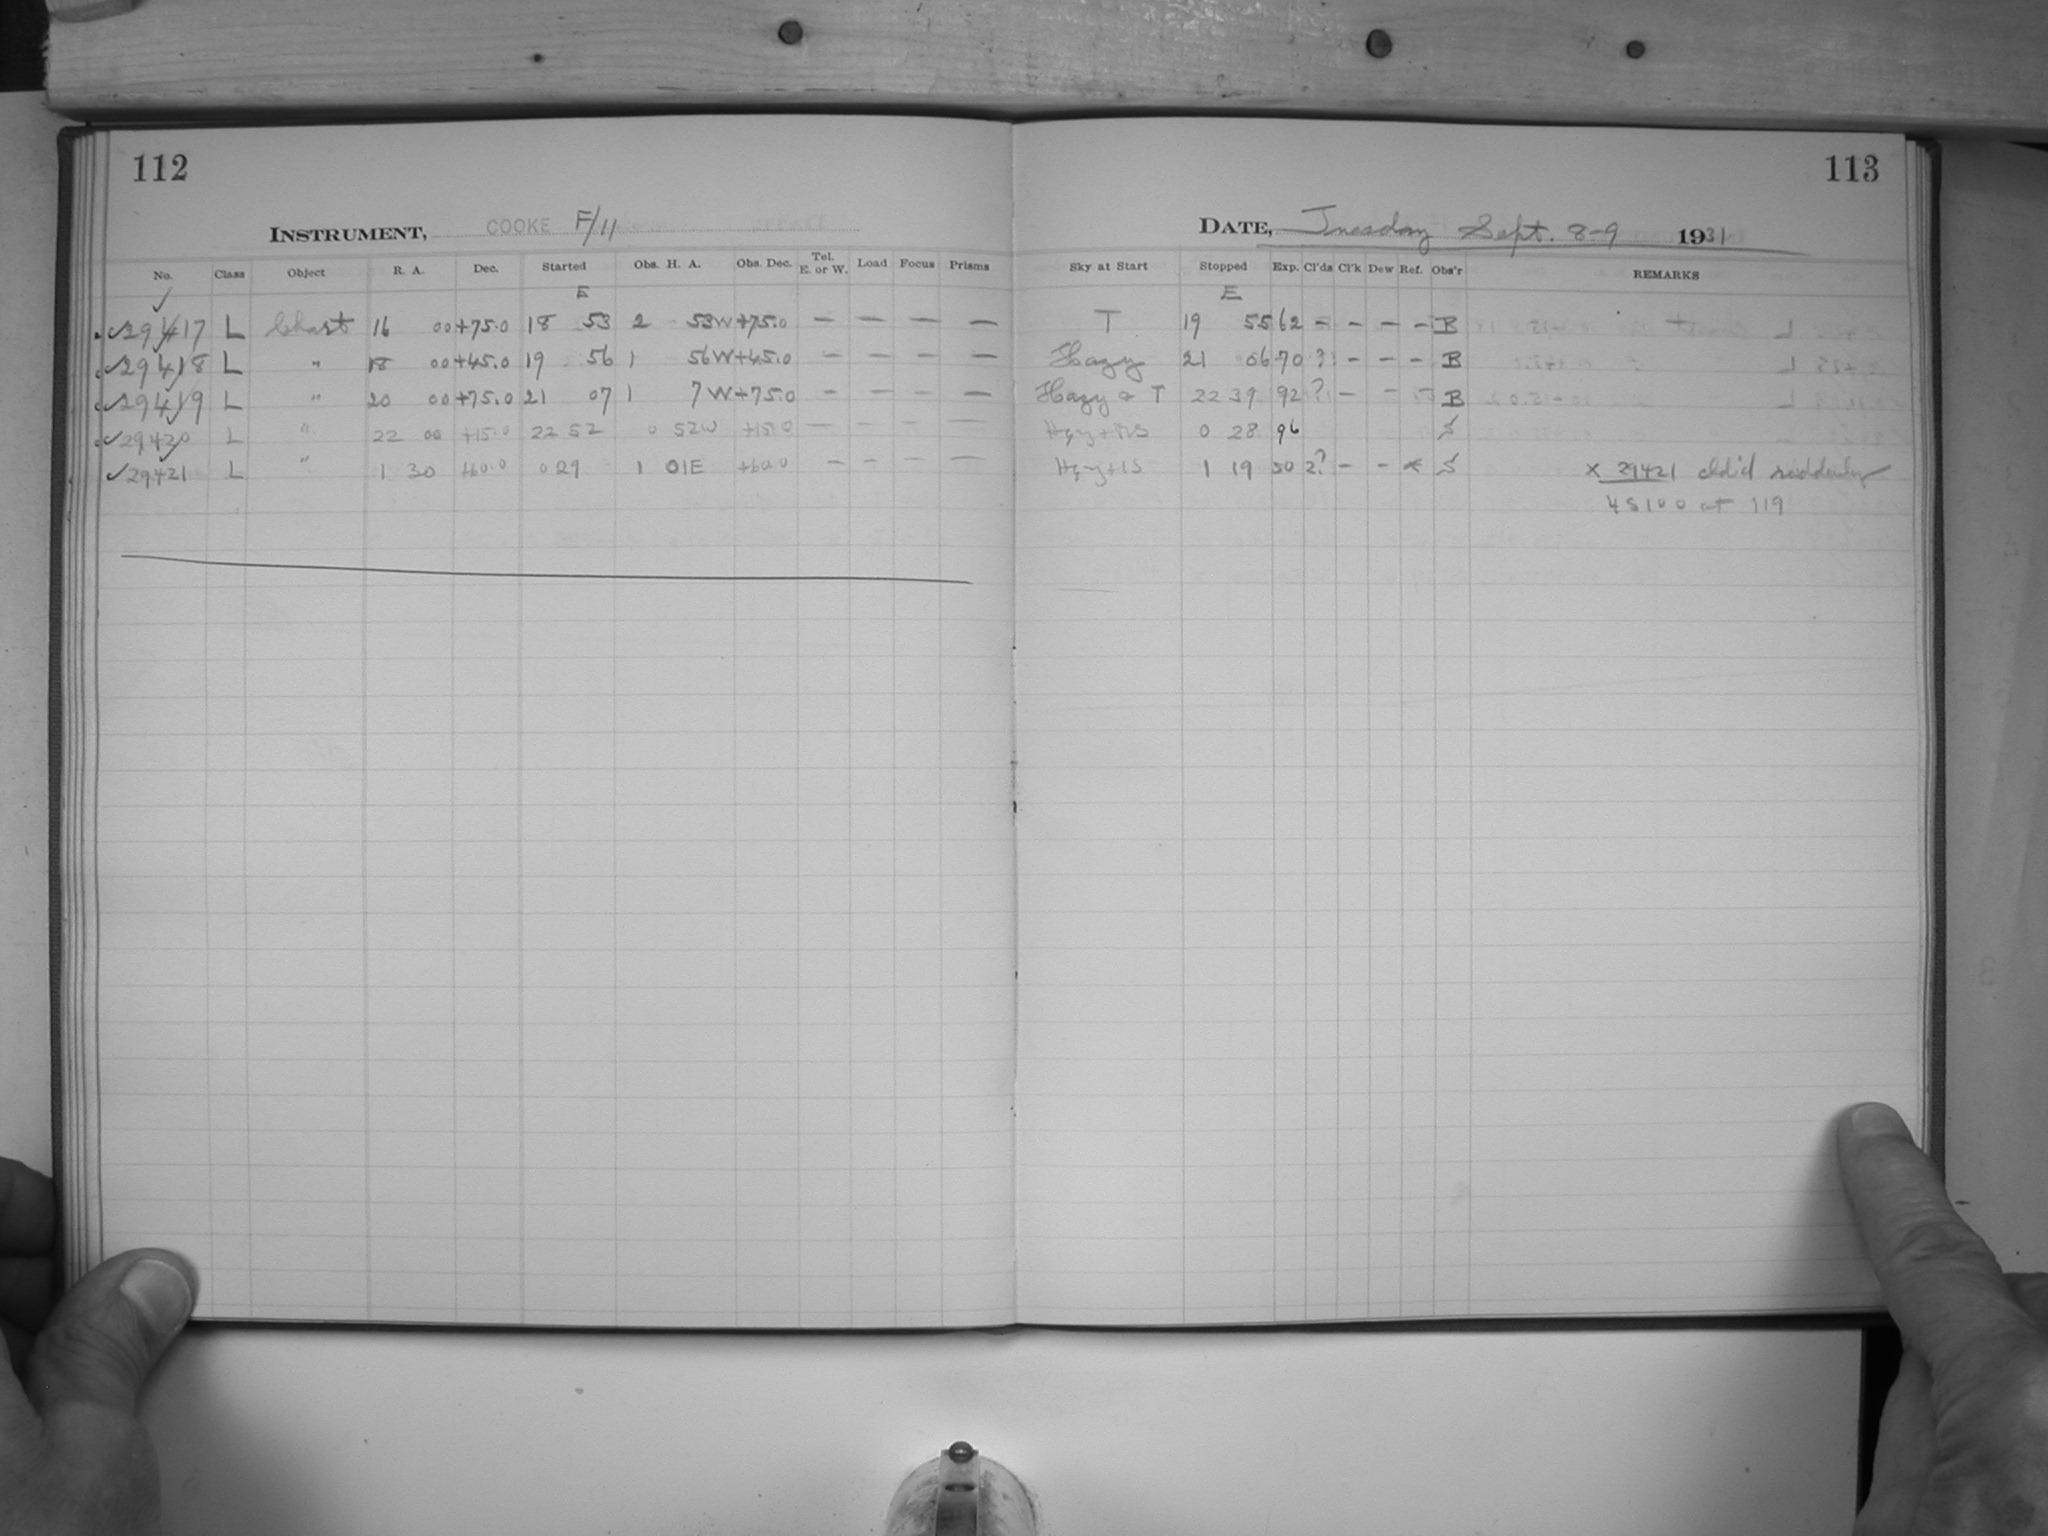 112
INSTRUMENT, COOKE F/11
No. Class Object R. A. Dec. Started Obs. H. A. Obs. Dec. Tel. E. or W. Load Focus Prisms
E
✓29417 L Chart 16 00 +75.0 18 53 2 53W +75.0 — — — —
✓29418 L " 18 00 +45.0 19 56 1 56W +45.0 — — — —
✓29419 L " 20 00 +75.0 21 07 1 7W +75.0 — — — —
✓29420 L " 22 00 +15.0 22 52 0 52W +15.0 — — — —
✓29421 L " 1 30 +60.0 0 29 1 01E +60.0 — — — —
113
DATE, Tuesday Sept. 8-9 1931
Sky at Start Stopped Exp. Cl'ds Cl'k Dew Ref. Obs'r REMARKS
E
T 19 55 62 — — — — B
Hazy 21 06 70 ? — — — B
Hazy & T 22 39 92 ? — — B
0 28 96 S
1 19 50 2? — — × S × 29421 cld'd suddenly
at 119